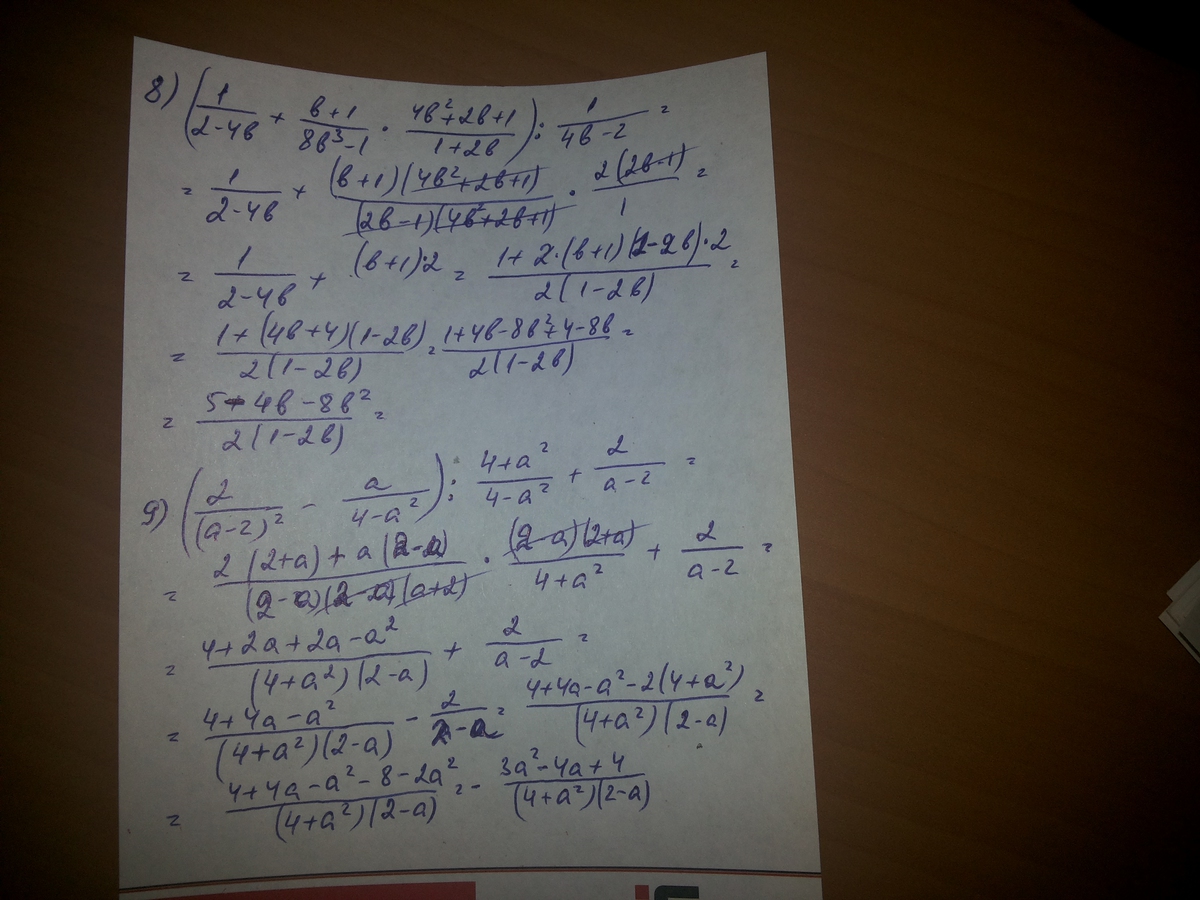 8) (1/(2-4в) + (в+1)/(8в³-1) · (4в²+2в+1)/(1+2в)) : 1/(4в-2) =
= 1/(2-4в) + (в+1)(4в²+2в+1)/((2в-1)(4в²+2в+1)) · 2(2в-1)/1 =
= 1/(2-4в) + (в+1)·2 = (1+2·(в+1)(1-2в)·2)/(2(1-2в)) =
= (1+(4в+4)(1-2в))/(2(1-2в)) = (1+4в-8в²+4-8в)/(2(1-2в)) =
= (5-4в-8в²)/(2(1-2в)) =
9) (2/(a-2)² - a/(4-a²)) : (4+a²)/(4-a²) + 2/(a-2) =
= (2(2+a)+a(2-a))/((2-a)(2-a)(a+2)) · (2-a)(2+a)/(4+a²) + 2/(a-2) =
= (4+2a+2a-a²)/((4+a²)(2-a)) + 2/(a-2) =
= (4+4a-a²)/((4+a²)(2-a)) - 2/(2-a) = (4+4a-a²-2(4+a²))/((4+a²)(2-a)) =
= (4+4a-a²-8-2a²)/((4+a²)(2-a)) = - (3a²-4a+4)/((4+a²)(2-a))